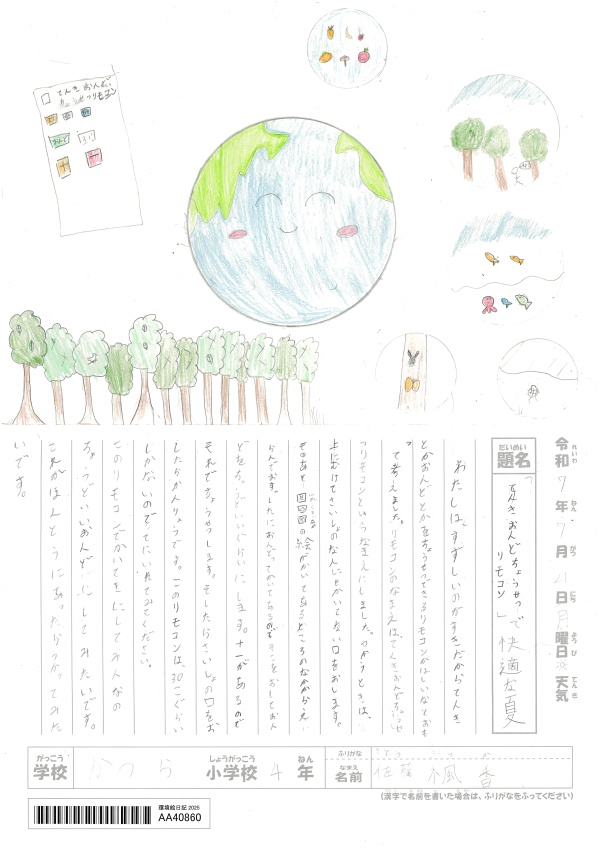 てんき おんど
ちょうせつリモコン
おんど
令和7年7月21日月曜日 天気
れいわ ねん がつ にち ようび てんき
だいめい
題名
「天きおんどちょうせつ
リモコン」で快適な夏
わたしは、すずしいのがすきだからてんき
とかおんどとかをちょうせつできるリモコンがほしいなとおも
って考えました。リモコンのなまえは、てんきおんどちょうせ
つリモコンというなまえにしました。つかうときは、
上にむけてさいしょのなんにもかいてない口をおします。
そのあと 回四回の絵がかいてあるところのなかから、え
らんでおす。したにおんどってかいてあるのをおしておん
どをちょうどいいぐらいにします。十一があるので
それでちょうせつします。そしたらさいしょの口をお
したらかんりょうです。このリモコンは、30こぐらい
しかないのでてにいれてみてください。
このリモコンでかいてきにしてみんなの
ちょうどいいおんどにしてみたいです。
これがほんとうにあったらつかってみた
いです。
がっこう
学校
かつら
しょうがっこう
小学校
4
ねん
年
ふりがな
なまえ
名前
さとう ふうか
佐藤 楓香
(漢字で名前を書いた場合は、ふりがなをふってください)
環境絵日記 2025
AA40860